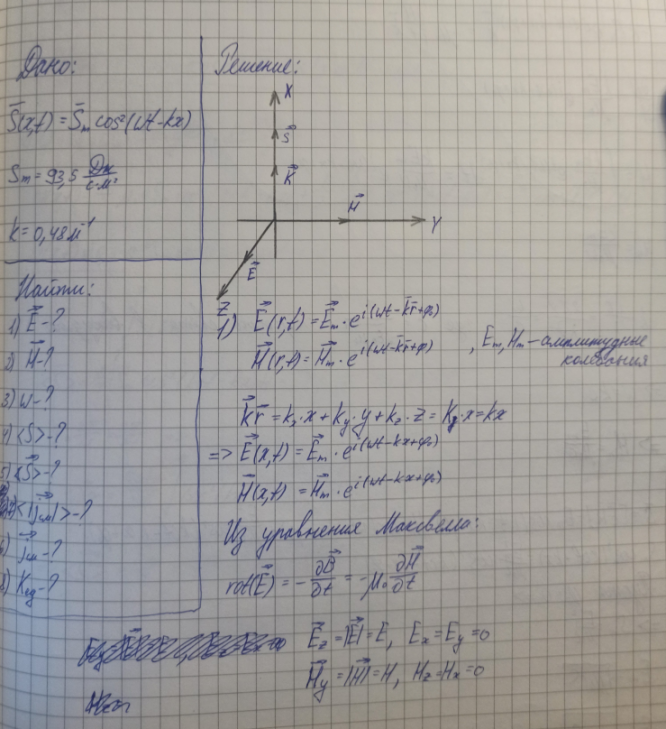 Дано:
S⃗(x,t) = S⃗m cos²(ωt-kx)
Sm = 93,5 Дж/с·м²
k = 0,48 м⁻¹
Найти:
1) E⃗-?
2) H⃗-?
3) ω-?
4) <S>-?
5) <S⃗>-?
<|j⃗см|>-?
6) j⃗см-?
8) Kед-?
Решение:
X
S⃗
K⃗
H⃗
Y
E⃗
Z
1) E⃗(r,t) = E⃗m · e^i(ωt-k⃗r⃗+φ₀)
H⃗(r,t) = H⃗m · e^i(ωt-k⃗r⃗+φ₀) , Em, Hm – амплитудные
колебания
k⃗r⃗ = kx·x + ky·y + kz·z = kx·x = kx
=> E⃗(x,t) = E⃗m · e^i(ωt-kx+φ₀)
H⃗(x,t) = H⃗m · e^i(ωt-kx+φ₀)
Из уравнения Максвела:
rot(E⃗) = -∂B⃗/∂t = -μ₀ ∂H⃗/∂t
E⃗z = |E⃗| = E, Ex = Ey = 0
H⃗y = |H⃗| = H, Hz = Hx = 0